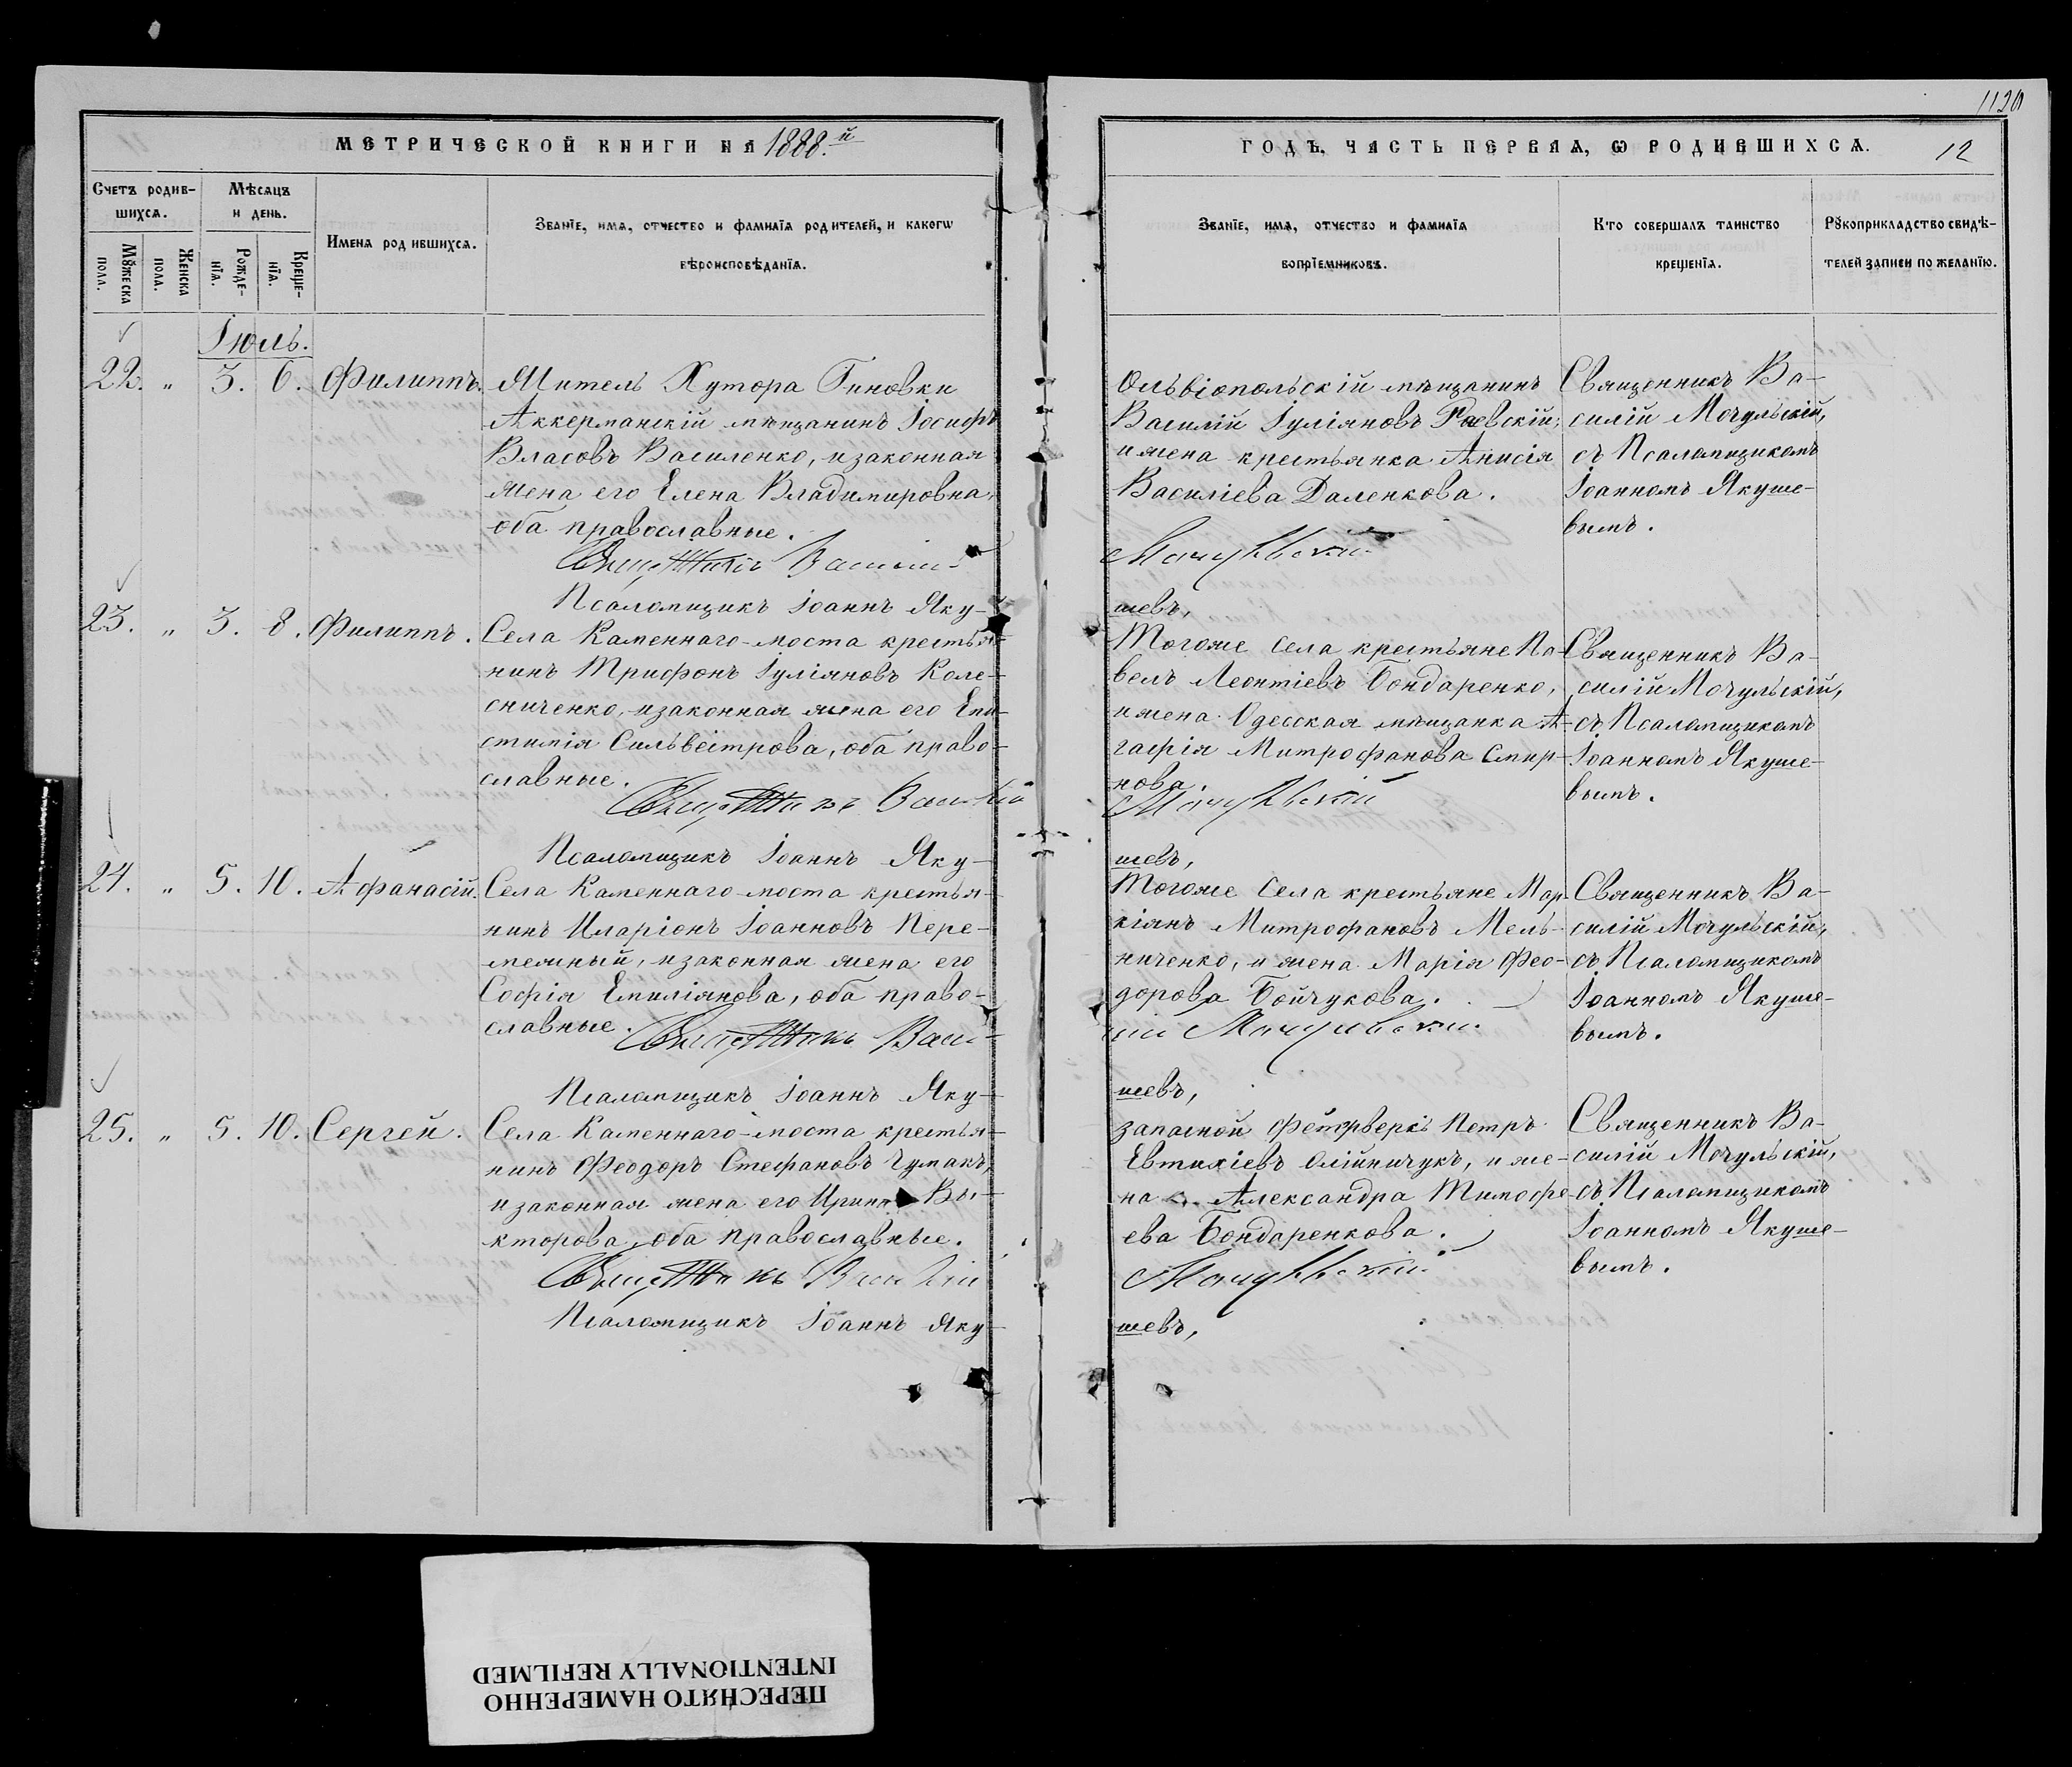 1120
МЕТРИЧЕСКОЙ КНИГИ НА 1888.й
ГОДЪ, ЧАСТЬ ПЕРВАЯ, Ѡ РОДИВШИХСѦ.
12
Счетъ родив-
шихсѧ.
Мѣсяцъ
и день.
Мꙋжеска
пола.
Женска
пола.
Рожде-
нїѧ.
Креще-
нїѧ.
Имена родившихсѧ.
Званїе, имѧ, отчество и фамилїѧ родителей, и какогѡ
вѣроисповѣданїѧ.
Званїе, имѧ, отчество и фамилїѧ
воспрїемниковъ.
Кто совершалъ таинство
крещенїѧ.
Рꙋкоприкладство свидѣ-
телей записи по желанїю.
Іюль.
22. " 3. 6. Филиппъ.
Житель Хутора Гиновки
Аккерманскій мѣщанинъ Іосифъ
Власовъ Василенко, и законная
жена его Елена Владимировна,
оба православные.
Священникъ Василій
Псаломщикъ Іоаннъ Яку-
Ольвіопольскій мѣщанинъ
Василій Іуліановъ Раевскій,
и жена крестьянка Анисія
Василіева Даленкова.
Мочульскій
шевъ,
Священникъ Ва-
силій Мочульскій,
съ Псаломщикомъ
Іоанномъ Якуше-
вымъ.
23. " 3. 8. Филиппъ.
Села Каменнаго-моста крестья-
нинъ Трифонъ Іуліановъ Коле-
сниченко, и законная жена его Епи-
стимія Сильвестрова, оба право-
славные.
Священникъ Василій
Псаломщикъ Іоаннъ Яку-
Тогоже села крестьяне Па-
велъ Леонтіевъ Бондаренко,
и жена Одесская мѣщанка А-
гафія Митрофанова Смир-
нова.
Мочульскій
шевъ,
Священникъ Ва-
силій Мочульскій,
съ Псаломщикомъ
Іоанномъ Якуше-
вымъ.
24. " 5. 10. Афанасій.
Села Каменнаго-моста крестья-
нинъ Иларіонъ Іоанновъ Пере-
межный, и законная жена его
Софія Емиліянова, оба право-
славные.
Священникъ Васи-
Псаломщикъ Іоаннъ Яку-
Тогоже села крестьяне Мар-
кіянъ Митрофановъ Мель-
ниченко, и жена Марія Фео-
дорова Бойчукова.
лій Мочульскій
шевъ,
Священникъ Ва-
силій Мочульскій,
съ Псаломщикомъ
Іоанномъ Якуше-
вымъ.
25. " 5. 10. Сергей.
Села Каменнаго-моста крестья-
нинъ Феодоръ Стефановъ Чумакъ,
и законная жена его Ирина Ви-
кторова, оба православные.
Священникъ Василій
Псаломщикъ Іоаннъ Яку-
запасной фейерверкъ Петръ
Евтихіевъ Олійничукъ, и же-
на Александра Тимофе-
ева Бондаренкова.
Мочульскій
шевъ,
Священникъ Ва-
силій Мочульскій,
съ Псаломщикомъ
Іоанномъ Якуше-
вымъ.
ПЕРЕСНЯТО НАМЕРЕННО
INTENTIONALLY REFILMED